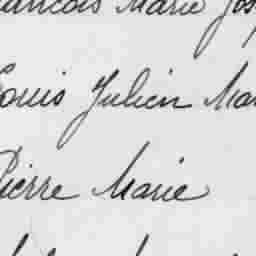 ancois Marie Jos
Louis Julien Mar
Pierre Marie